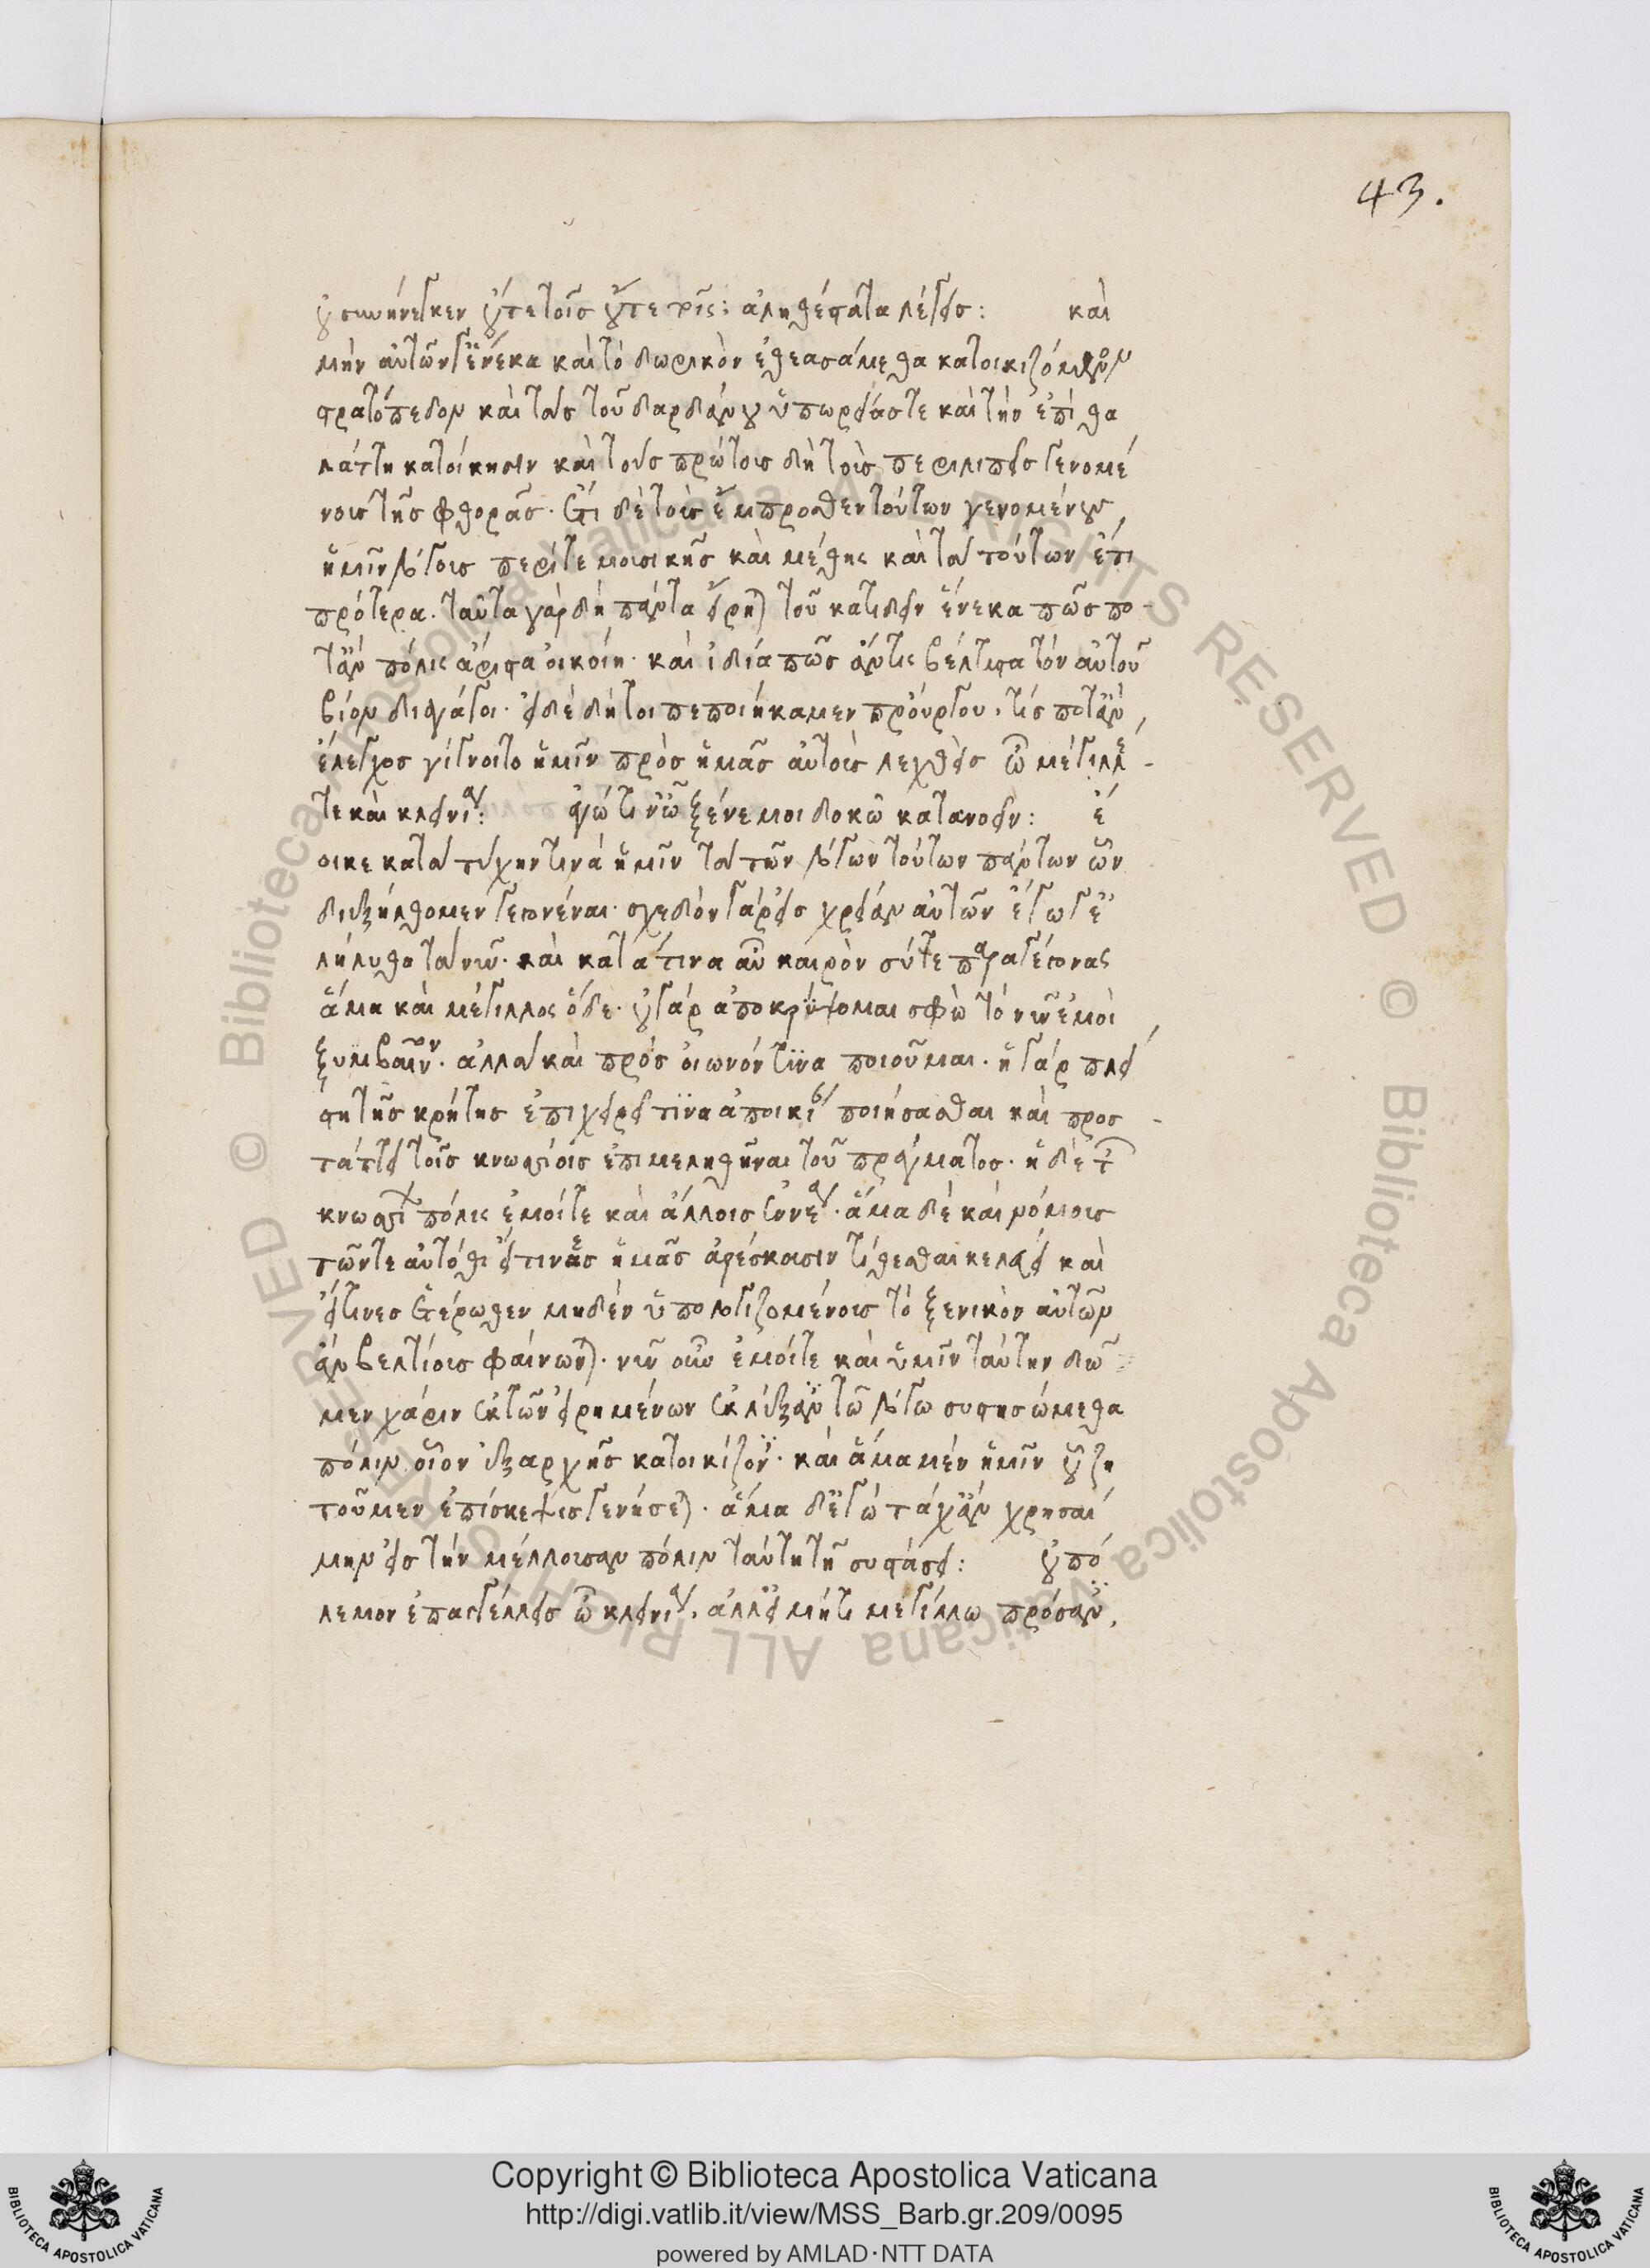 43.
οὐ συνήνεγκεν οὔτε τοῖς οὔτε τοῖς: ἀληθέστατα λέγεις: καὶ
μὴν αὐτῶν γ' ἕνεκα καὶ τὸ δωρικὸν ἐθεασάμεθα κατοικιζόμενον
στρατόπεδον καὶ τὰς τοῦ δαρδάνου ὑπωρείας τε καὶ τὴν ἐπὶ θα
λάττη κατοίκησιν καὶ τοὺς πρώτους δὴ τοὺς περιλιπεῖς γενομέ
νους τῆς φθορᾶς. ἔτι δὲ τοὺς ἔμπροσθεν τούτων γενομένους
ἡμῖν λόγους περί τε μουσικῆς καὶ μέθης καὶ τὰ τούτων ἔτι
πρότερα. ταῦτα γὰρ δὴ πάντα εἴρηται τοῦ κατιδεῖν ἕνεκα πῶς πο-
τ' ἂν πόλις ἄριστα οἰκοίη. καὶ ἰδία πῶς ἄν τις βέλτιστα τὸν αὐτοῦ
βίον διαγάγοι. εἰ δὲ δή τοι πεποιήκαμεν προύργου. τίς ποτ' ἂν
ἔλεγχος γίγνοιτο ἡμῖν πρὸς ἡμᾶς αὐτοὺς λεχθεὶς ὦ μέγιλλέ
τε καὶ κλεινία: ἐγώ τιν' ὦ ξένε μοι δοκῶ κατανοεῖν: ἔ
οικε κατὰ τύχην τινὰ ἡμῖν τὰ τῶν λόγων τούτων πάντων ὧν
διεξήλθομεν γεγονέναι. σχεδὸν γὰρ εἰς χρείαν αὐτῶν ἔγωγ' ἐ
λήλυθα τανῦν. καὶ κατά τινα αὖ καιρὸν σύ τε παραγέγονας
ἅμα καὶ μέγιλλος ὅδε. οὐ γὰρ ἀποκρύψομαι σφὼ τὸ νῦν ἐμοὶ
ξυμβαῖνον. ἀλλὰ καὶ πρὸς οἰωνόν τινα ποιοῦμαι. ἡ γὰρ πλεί
στη τῆς κρήτης ἐπιχειρεῖ τινα ἀποικίαν ποιήσασθαι καὶ προσ-
τάττει τοῖς κνωσίοις ἐπιμεληθῆναι τοῦ πράγματος. ἡ δὲ τῶν
κνωσίων πόλις ἐμοί τε καὶ ἄλλοις ἐννέα. ἅμα δὲ καὶ νόμους
τῶν τε αὐτόθι εἴ τινες ἡμᾶς ἀρέσκουσιν τίθεσθαι κελεύει καὶ
εἴ τινες ἑτέρωθεν μηδὲν ὑπολογιζομένους τὸ ξενικὸν αὐτῶν
ἂν βελτίους φαίνωνται. νῦν οὖν ἐμοί τε καὶ ὑμῖν ταύτην δῶ
μεν χάριν ἐκ τῶν εἰρημένων ἐκλέξαντες τῷ λόγω συστησώμεθα
πόλιν οἷον ἐξ ἀρχῆς κατοικίζοντες. καὶ ἅμα μὲν ἡμῖν οὗ ζη
τοῦμεν ἐπίσκεψις γενήσεται. ἅμα δ' ἐγὼ τάχ' ἂν χρησαί
μην εἰς τὴν μέλλουσαν πόλιν ταύτη τῇ συστάσει: οὐ πό
λεμον ἐπαγγέλλεις ὦ κλεινία. ἀλλ' εἰ μή τι μεγίλλω πρόσαντες.
Copyright © Biblioteca Apostolica Vaticana
http://digi.vatlib.it/view/MSS_Barb.gr.209/0095
powered by AMLAD·NTT DATA